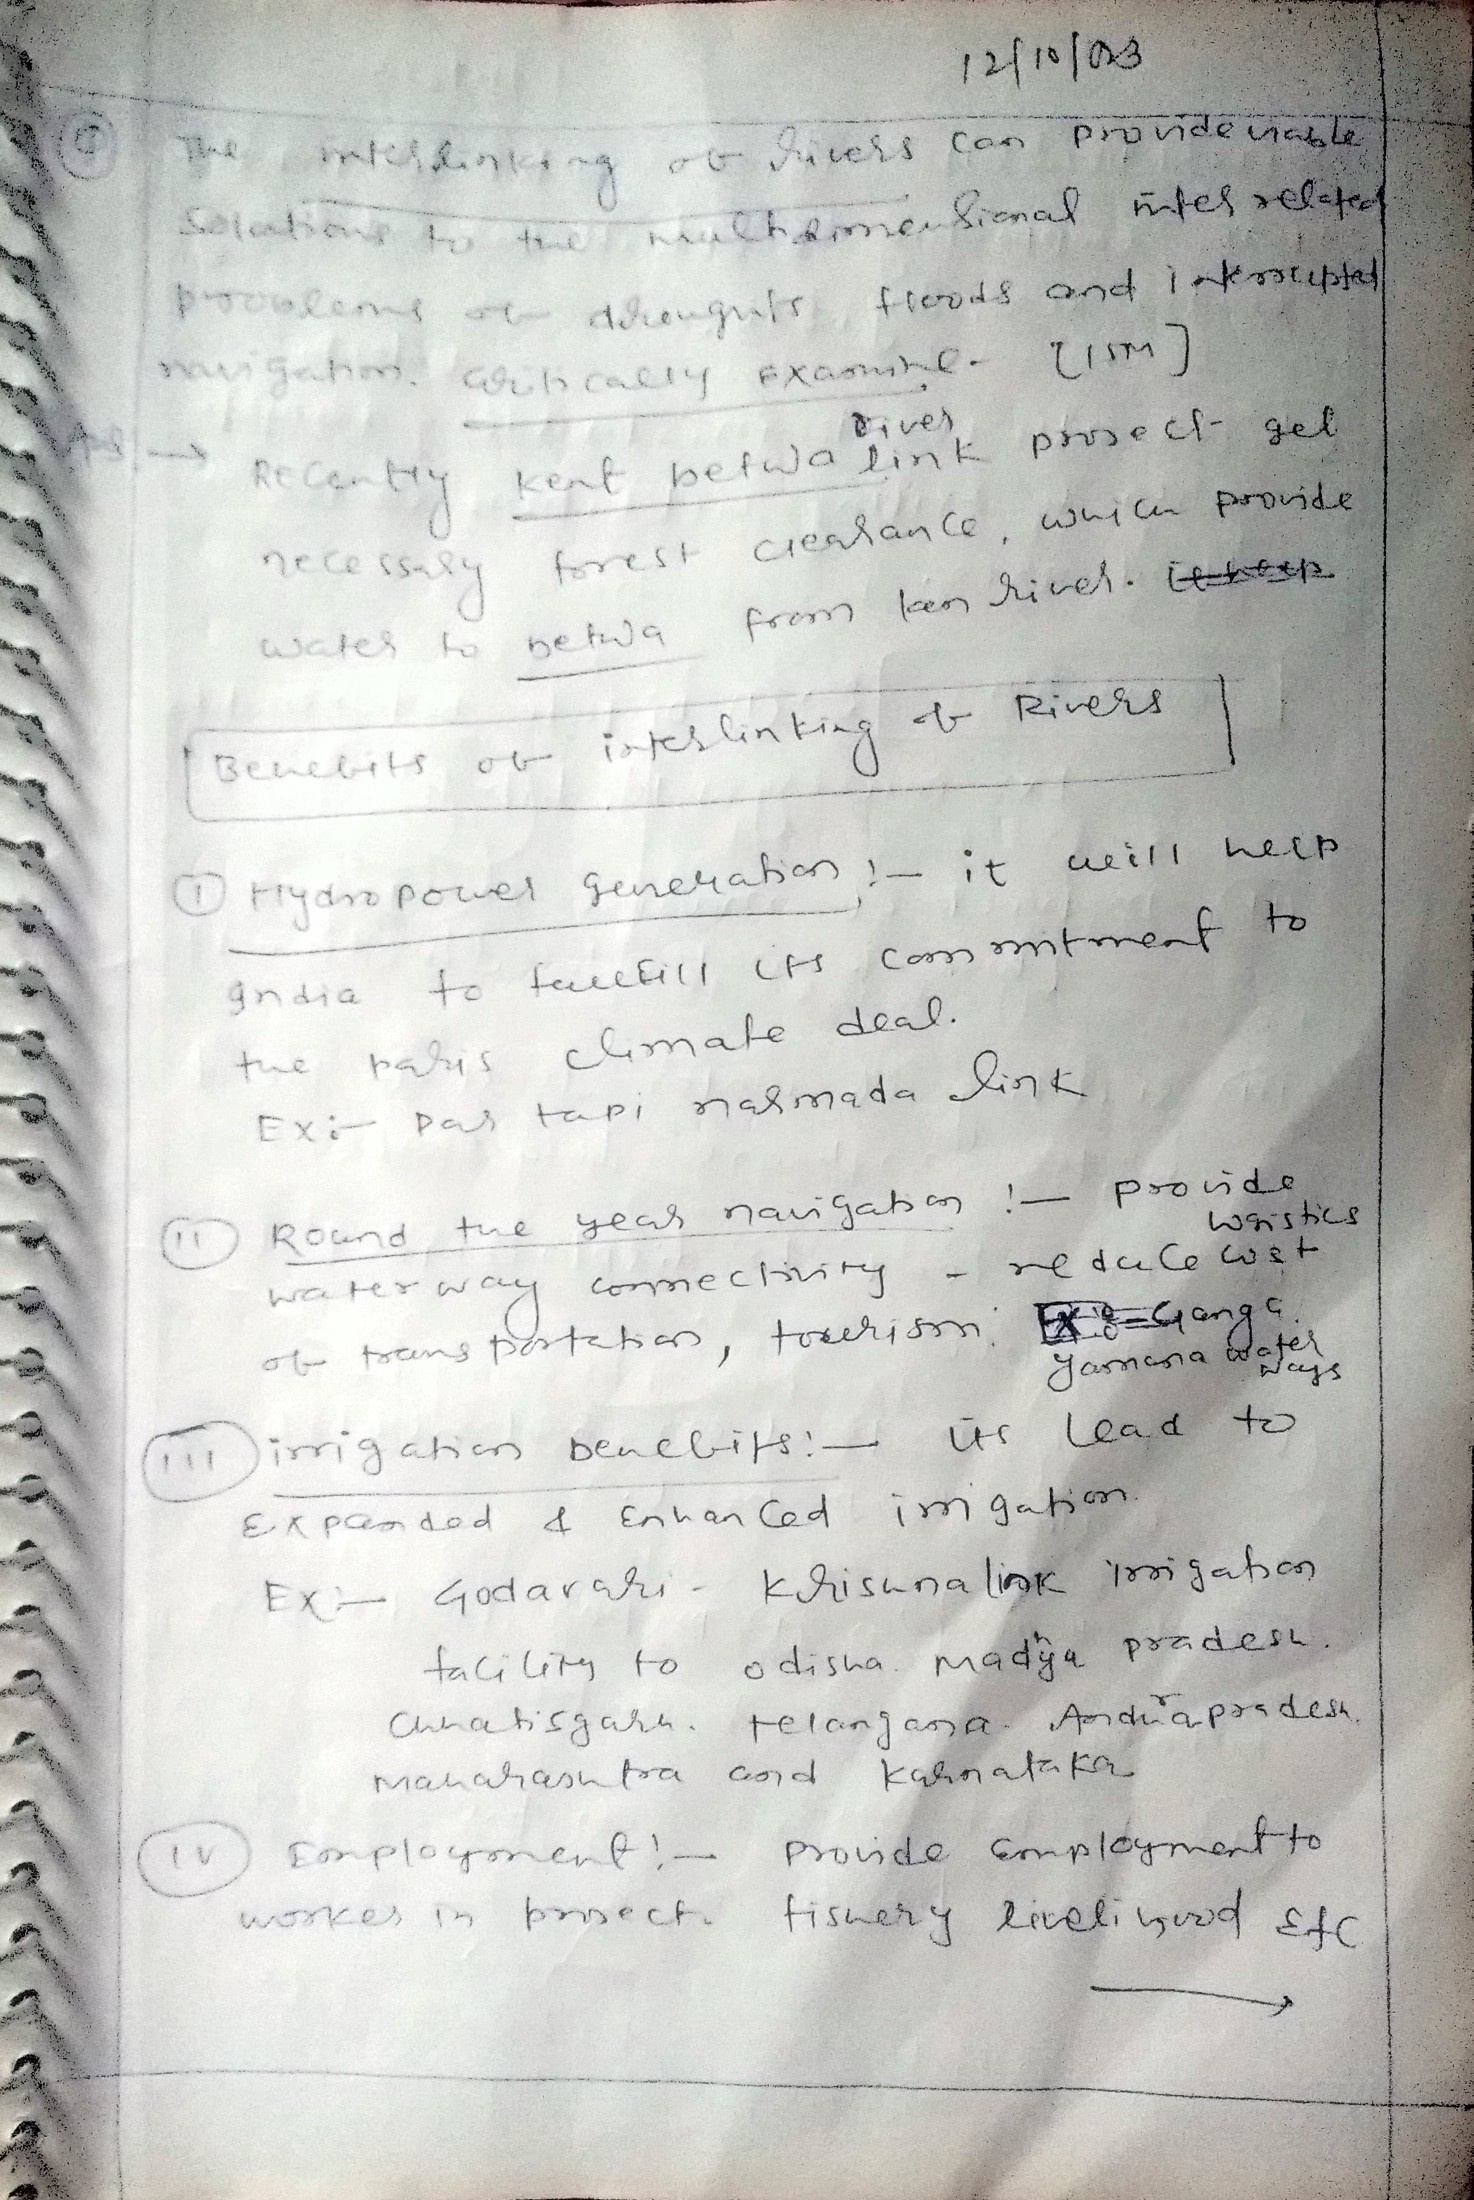 12/10/023
Q The interlinking of Rivers can provide viable
solutions to the multidimensional inter related
problems of droughts, floods and interrupted
navigation. Critically Examine. [15M]
Ans → Recently Kent betwa river link project get
necessary forest clearance, which provide
water to betwa from ken river.
Benefits of interlinking of Rivers
(I) Hydropower generation :- it will help
India to fullfill its commitment to
the paris climate deal.
Ex:- Par tapi narmada link
(II) Round the year navigation :- provide
waterway connectivity - reduce logistics cost
of transportation, tourism. Ex:- Ganga
Yamuna water ways
(III) irrigation benefits:- its lead to
Expanded & Enhanced irrigation.
Ex:- Godavari - Krishna link irrigation
facility to odisha. Madhya pradesh.
Chhatisgarh. telangana. Andhra pradesh.
Maharashtra and Karnataka
(IV) Employment :- provide employment to
worker in project. fishery livelihood Etc
→